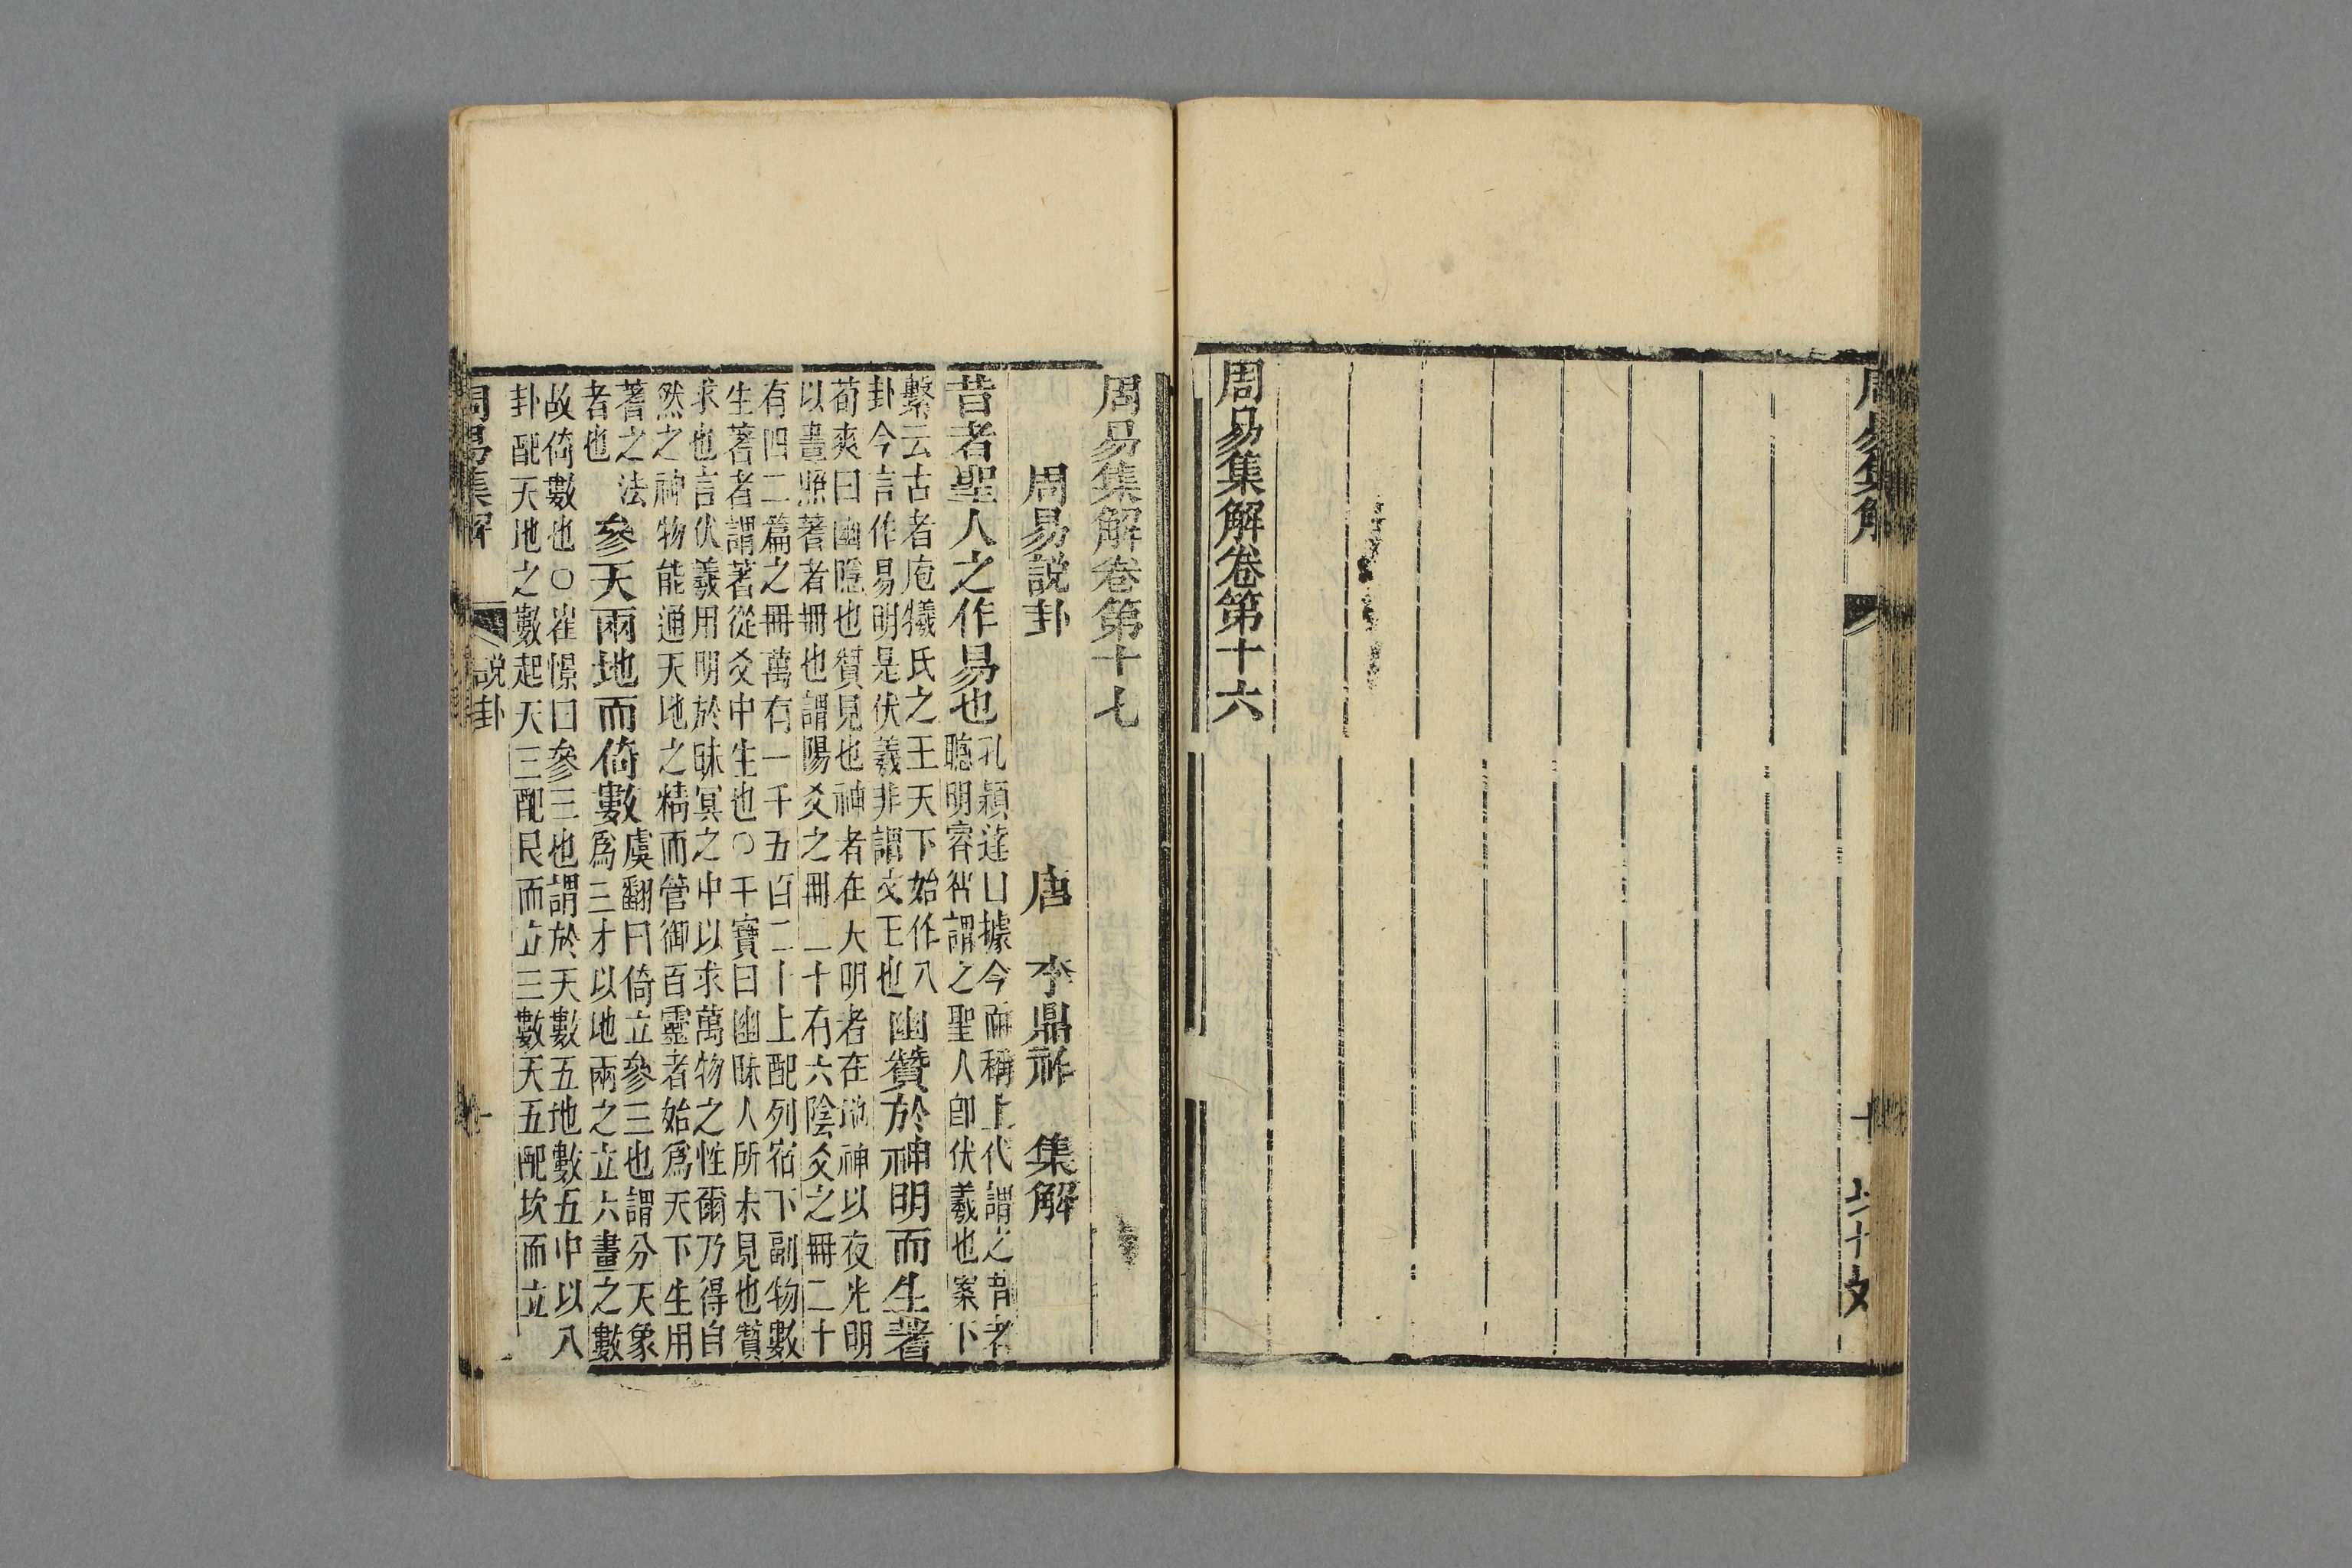 周易集解
十
六十文
周易集解卷第十六
周易集解卷第十七
周易説卦
唐 李鼎祚 集解
昔者聖人之作易也
孔穎達曰據今而稱上代謂之昔者
聰明睿智謂之聖人即伏羲也案下
繫云古者庖犧氏之王天下始作八
卦今言作易明是伏羲非謂文王也
幽贊於神明而生蓍
荀爽曰幽隱也贊見也神者在天明者在地神以夜光明
以晝照蓍者冊也謂陽爻之冊三十有六陰爻之冊二十
有四二篇之冊萬有一千五百二十上配列宿下副物數
生蓍者謂蓍從爻中生也○干寶曰幽昧人所未見也贊
求也言伏羲用明於昧冥之中以求萬物之性爾乃得自
然之神物能通天地之精而管御百靈者始爲天下生用
蓍之法
者也
參天兩地而倚數
虞翻曰倚立參三也謂分天象
爲三才以地兩之立六畫之數
故倚數也○崔憬曰參三也謂於天數五地數五中以八
卦配天地之數起天三配艮而立三數天五配坎而立
周易集解
説卦
一